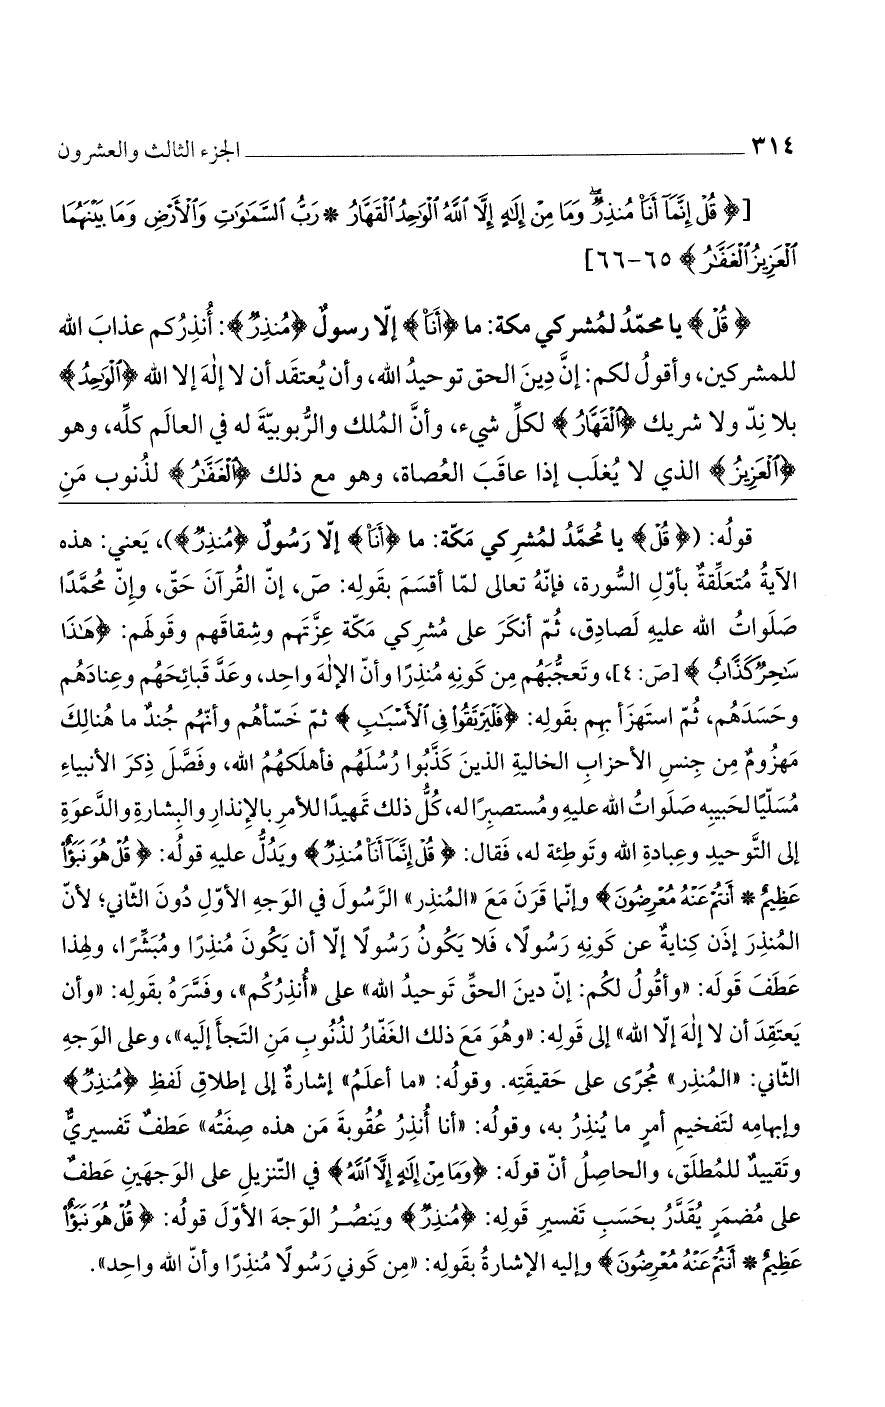 ٣١٤ ــــــــــــــــــــــــــــــــــــــــ الجزء الثالث والعشرون
[﴿قُلْ إِنَّمَآ أَنَا۠ مُنذِرٌۖ وَمَا مِنْ إِلَٰهٍ إِلَّا ٱللَّهُ ٱلْوَٰحِدُ ٱلْقَهَّارُ * رَبُّ ٱلسَّمَٰوَٰتِ وَٱلْأَرْضِ وَمَا بَيْنَهُمَا
ٱلْعَزِيزُ ٱلْغَفَّٰرُ﴾ ٦٥-٦٦]
﴿قُلْ﴾ يا محمّدُ لمُشركي مكة: ما ﴿أَنَا۠﴾ إلّا رسولٌ ﴿مُنذِرٌ﴾: أُنذِرُكم عذابَ الله
للمشركين، وأقولُ لكم: إنَّ دِينَ الحق توحيدُ الله، وأن يُعتقَد أن لا إلٰهَ إلا الله ﴿ٱلْوَٰحِدُ﴾
بلا نِدّ ولا شريك ﴿ٱلْقَهَّارُ﴾ لكلِّ شيء، وأنَّ المُلك والرُّبوبيّةَ له في العالَم كلِّه، وهو
﴿ٱلْعَزِيزُ﴾ الذي لا يُغلَب إذا عاقَبَ العُصاة، وهو مع ذلك ﴿ٱلْغَفَّٰرُ﴾ لذُنوب مَنِ
قولُه: (﴿قُلْ﴾ يا مُحمَّدُ لمُشرِكي مَكّة: ما ﴿أَنَا۠﴾ إلّا رَسُولٌ ﴿مُنذِرٌ﴾)، يَعني: هذه
الآيةُ مُتعَلِّقةٌ بأوّلِ السُّورة، فإنّهُ تعالى لمّا أقسَمَ بقَولِه: صَ، إنّ القُرآنَ حَقّ، وإنّ مُحمَّدًا
صَلَواتُ الله عليهِ لَصادِق، ثُمّ أنكَرَ على مُشرِكي مَكّة عِزَّتَهم وشِقاقَهم وقَولَهم: ﴿هَٰذَا
سَٰحِرٌ كَذَّابٌ﴾ [صَ: ٤]، وتَعجُّبَهُم مِن كَونِهِ مُنذِرًا وأنّ الإلٰهَ واحِد، وعَدَّ قَبائحَهُم وعِنادَهُم
وحَسَدَهُم، ثُمّ استَهزَأ بهِم بقَولِه: ﴿فَلْيَرْتَقُوا۟ فِى ٱلْأَسْبَٰبِ﴾ ثمّ خَسّأهُم وأنّهُم جُندٌ ما هُنالِكَ
مَهزُومٌ مِن جِنسِ الأحزابِ الخاليةِ الذينَ كَذَّبُوا رُسُلَهُم فأهلَكهُمُ الله، وفَصَّلَ ذِكرَ الأنبياءِ
مُسَلّيًا لحَبيبِه صَلَواتُ الله عليهِ ومُستصبِرًا له، كُلُّ ذلك تمهيدًا للأمرِ بالإنذارِ والبِشارةِ والدَّعوَةِ
إلى التَّوحيدِ وعِبادةِ الله وتَوطِئة له، فقال: ﴿قُلْ إِنَّمَآ أَنَا۠ مُنذِرٌ﴾ ويَدُلُّ عليهِ قولُه: ﴿قُلْ هُوَ نَبَؤٌا۟
عَظِيمٌ * أَنتُمْ عَنْهُ مُعْرِضُونَ﴾ وإنّما قَرَنَ مَعَ «المُنذِر» الرَّسُولَ في الوَجهِ الأوّلِ دُونَ الثّاني؛ لأنّ
المُنذِرَ إذَن كِنايةٌ عن كَونِهِ رَسُولًا، فَلا يَكُونُ رَسُولًا إلّا أن يَكُونَ مُنذِرًا ومُبَشِّرًا، ولهذا
عَطَفَ قَولَه: «وأقُولُ لكُم: إنّ دينَ الحقِّ تَوحيدُ الله» على «أُنذِرُكُم»، وفَسَّرَهُ بقَولِه: «وأن
يَعتَقِدَ أن لا إلٰهَ إلّا الله» إلى قَولِه: «وهُوَ مَعَ ذلك الغَفّارُ لذُنُوبِ مَنِ التَجأ إلَيه»، وعلى الوَجهِ
الثّاني: «المُنذِر» مُجرًى على حَقيقَتِه. وقولُه: «ما أعلَمُ» إشارةٌ إلى إطلاقِ لَفظِ ﴿مُنذِرٌ﴾
وإبهامِه لتَفخيمِ أمرِ ما يُنذِرُ به، وقولُه: «أنا أُنذِرُ عُقُوبةَ مَن هذه صِفَتُه» عَطفٌ تَفسيريٌّ
وتَقييدٌ للمُطلَق، والحاصِلُ أنّ قولَه: ﴿وَمَا مِنْ إِلَٰهٍ إِلَّا ٱللَّهُ﴾ في التّنزيلِ على الوَجهَينِ عَطفٌ
على مُضمَرٍ يُقَدَّرُ بحَسَبِ تَفسيرِ قَولِه: ﴿مُنذِرٌ﴾ ويَنصُرُ الوَجهَ الأوّلَ قولُه: ﴿قُلْ هُوَ نَبَؤٌا۟
عَظِيمٌ * أَنتُمْ عَنْهُ مُعْرِضُونَ﴾ وإليه الإشارةُ بقَولِه: «مِن كَوني رَسُولًا مُنذِرًا وأنّ الله واحِد».